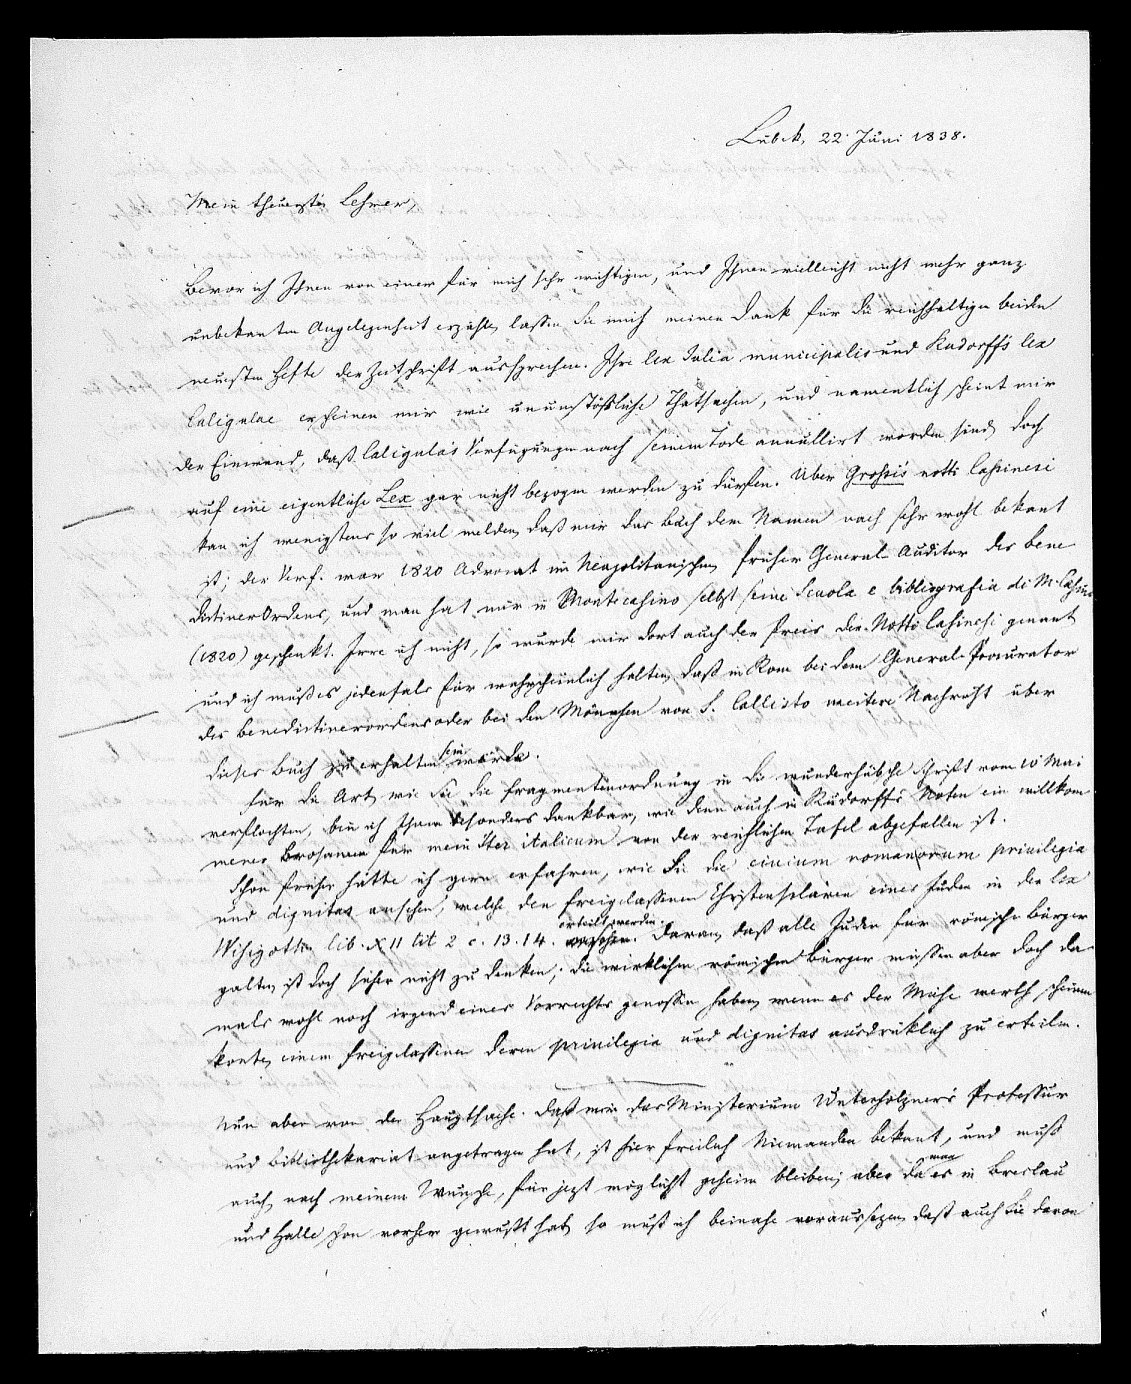 Lübek, 22. Juni 1838.
Mein theuerster Lehrer,
Bevor ich Ihnen von einer für mich sehr wichtigen, und Ihnen vielleicht nicht mehr ganz
unbekanten Angelegenheit erzähle, lassen Sie mich meinen Dank für die reichhaltigen beiden
neuesten Hefte der Zeitschrift aussprechen. Ihre lex Julia municipalis und Rudorffs lex
Caligulae erscheinen mir wie unumstößliche Thatsachen, und namentlich scheint mir
der Einwand, daß Caligula's Verfügungen nach seinem Tode annullirt worden sind, doch
auf eine eigentliche Lex gar nicht bezogen werden zu dürfen. Über Grossi's notti Cassinesi
kan ich wenigstens so viel melden, daß mir das Buch dem Namen nach sehr wohl bekant
ist; der Verf. war 1820 Advocat im Neapolitanischen, früher General-Auditor des Bene-
dictinerOrdens, und man hat mir in Montecasino selbst seine Scuola e bibliografia di M. Casino
(1820) geschenkt. Irre ich nicht, so wurde mir dort auch der Preis der Notti Casinesi genant
und ich muß es jedenfals für wahrscheinlich halten, daß in Rom bei dem General-Procurator
des Benedictinerordens oder bei den Mönchen von S. Callisto weitere Nachricht über
dieses Buch zu erhalten sein würde.
Für die Art, wie Sie die Fragmentenordnung in die wunderhübsche Schrift vom 10 Mai
verflochten, bin ich Ihnen besonders dankbar, wie denn auch in Rudorffs Noten ein willkom-
mener Brosamen für mein Iter italicum von der reichlichen Tafel abgefallen ist.
Schon früher hätte ich gern erfahren, wie Sie die civium romanorum privilegia
und dignitas ansehen, welche den freigelassenen Christensclaven eines Juden in der Lex
Wisigothor. lib. XII tit 2 c. 13. 14. erteilt werden. Daran, daß alle Juden für römische Bürger
galten, ist doch sicher nicht zu denken; die wirklichen römischen Bürger müssen aber doch da-
mals wohl noch irgend eines Vorrechts genossen haben, wenn es der Mühe werth scheinen
konte, einem Freigelassenen deren privilegia und dignitas ausdrüklich zu erteilen.
Nun aber von der Hauptsache. Daß mir das Ministerium Unterholzner's Professur
und Bibliothekariat angetragen hat, ist hier freilich Niemanden bekant, und muß
auch, nach meinem Wunsche, für jezt möglichst geheim bleiben; aber da man es in Breslau
und Halle schon vorher gewußt hat, so muß ich beinahe voraussezen, daß auch Sie davon